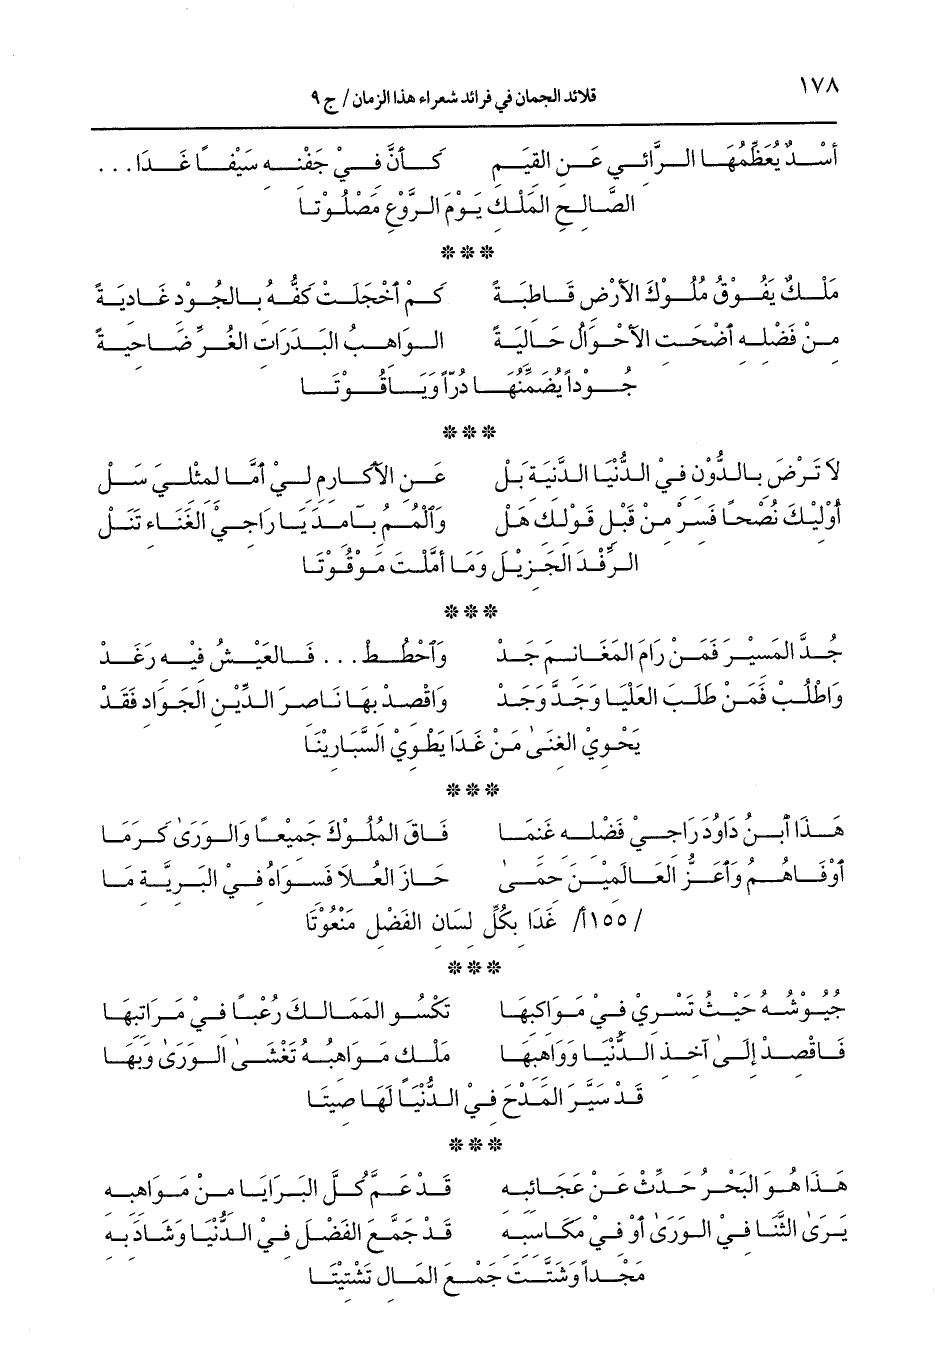 ١٧٨
قلائد الجمان في فرائد شعراء هذا الزمان / ج ٩
أُسْدٌ يُعَظِّمُهَا الرَّائي عَنِ القِيَمِ كَأنَّ فِيْ جَفْنِهِ سَيْفًا غَدَا . . .
الصَّالِحِ المَلْكِ يَوْمَ الرَّوْعِ مَصْلُوْتا
***
مَلْكٌ يَفُوْقُ مُلُوْكَ الأَرْضِ قَاطِبَةً كَمْ أَخْجَلَتْ كَفُّهُ بِالجُوْدِ غَادِيَةً
مِنْ فَضْلِهِ أَضْحَتِ الأَحْوَالُ حَالِيَةً الوَاهِبُ البَدَرَاتِ الغُرِّ ضَاحِيَةً
جُوداً يَضُمِّنُهَا دُرّاً وَيَاقُوْتَا
***
لاَ تَرْضَ بِالدُّوْنِ فِيْ الدُّنْيَا الدَّنِيَّةِ بَلْ عَنِ الأَكَارِمِ لِيْ أَمَّا لِمِثْلِيَ سَلْ
أُوْلِيْكَ نُصْحًا فَسِرْ مِنْ قَبْلِ قَوْلِكَ هَلْ وَالْمُمْ بآمِدَ يَا رَاجِيْ الغَنَاءِ تَنَلْ
الرِّفْدَ الجَزِيْلَ وَمَا أَمَّلْتَ مَوْقُوْتَا
***
جُدَّ المَسِيْرَ فَمَنْ رَامَ المَغَانِمَ جَدْ وَاحْطُطْ . . . فَالعَيْشُ فِيْهِ رَغَدْ
وَاطْلُبْ فَمَنْ طَلَبَ العَلْيَا وَجَدَّ وَجَدْ وَاقْصِدْ بِهَا نَاصِرَ الدِّيْنِ الجَوَادَ فَقَدْ
يَحْوِيْ الغِنَىٰ مَنْ غَدَا يَطْوِيْ السَّبَارِيْتَا
***
هَذَا ابْنُ دَاوُدَ رَاجِيْ فَضْلِهِ غَنِمَا فَاقَ المُلُوْكَ جَمِيْعًا وَالوَرَىٰ كَرَمَا
أَوْفَاهُمُ وَأَعَزُّ العَالَمِيْنَ حِمَىٰ حَازَ العُلاَ فَسِوَاهُ فِيْ البَرِيَّةِ مَا
/١٥٥أ/ غَدَا بِكُلِّ لِسَانِ الفَضْلِ مَنْعُوْتَا
***
جُيُوْشُهُ حَيْثُ تَسْرِيْ فِيْ مَوَاكِبِهَا تَكْسُو المَمَالِكَ رُعْبًا فِيْ مَرَاتِبِهَا
فَاقْصِدْ إِلَىٰ آخِذِ الدُّنْيَا وَوَاهِبِهَا مَلْكٌ مَوَاهِبُهُ تَغْشَىٰ الوَرَىٰ وَبِهَا
قَدْ سَيَّرَ المَدْحُ فِيْ الدُّنْيَا لَهَا صِيتَا
***
هَذَا هُوَ البَحْرُ حَدِّثْ عَنْ عَجَائِبِهِ قَدْ عَمَّ كُلَّ البَرَايَا مِنْ مَوَاهِبِهِ
يَرَىٰ الثَّنَا فِيْ الوَرَىٰ أَوْفِيْ مَكَاسِبِهِ قَدْ جَمَّعَ الفَضْلَ فِيْ الدُّنْيَا وَشَادَ بِهِ
مَجْداً وَشَتَّتَ جَمْعَ المَالِ تَشْتِيْتَا